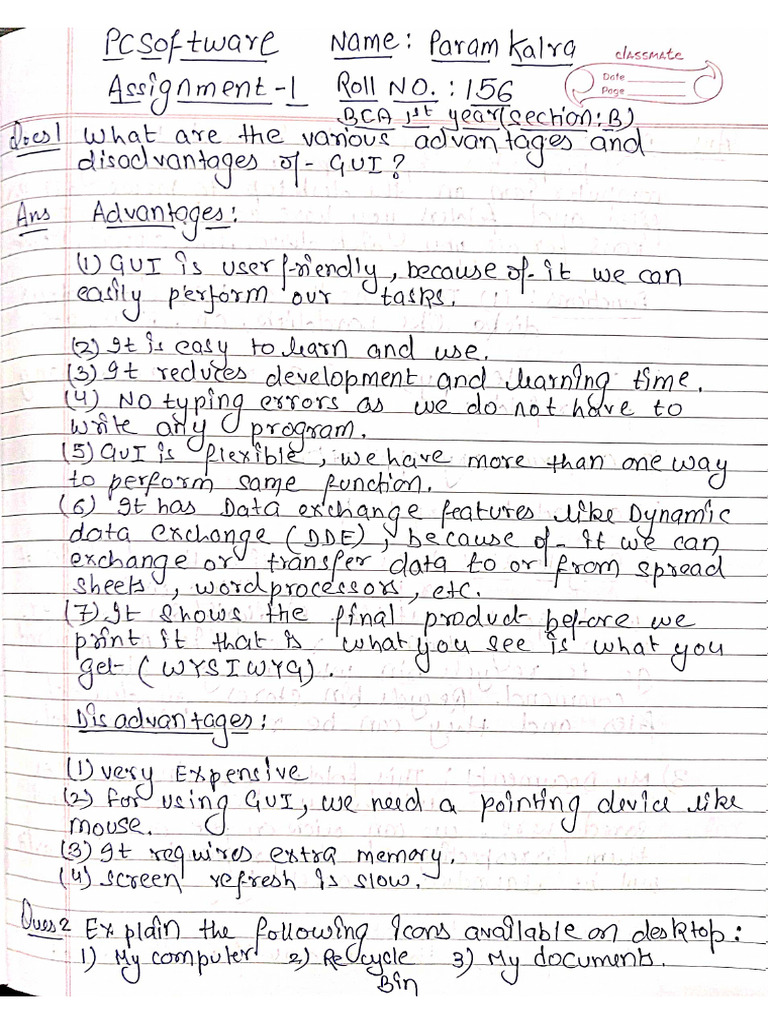 PC Software Name: Param Kalra
classmate
Assignment-1 Roll No.: 156
Date
Page
BCA 1st year (section: B)
Ques1 What are the various advantages and
disadvantages of GUI?
Ans Advantages:
(1) GUI is user friendly, because of it we can
easily perform our tasks.
(2) It is easy to learn and use.
(3) It reduces development and learning time.
(4) No typing errors as we do not have to
write any program.
(5) GUI is flexible, we have more than one way
to perform same function.
(6) It has Data exchange features like Dynamic
data exchange (DDE), because of it we can
exchange or transfer data to or from spread
sheets, word processors, etc.
(7) It shows the final product before we
print it that is what you see is what you
get (WYSIWYG).
Disadvantages:
(1) Very Expensive
(2) For using GUI, we need a pointing device like
mouse.
(3) It requires extra memory.
(4) Screen refresh is slow.
Ques2 Explain the following Icons available on desktop:
1) My computer 2) Recycle 3) My documents.
Bin